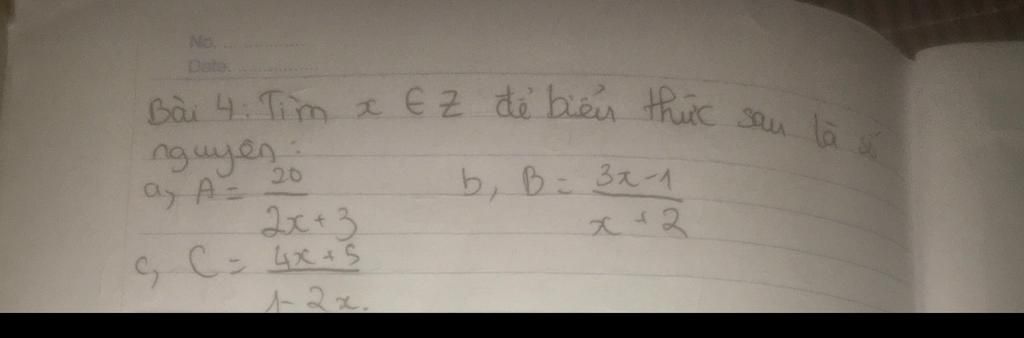 No. ..................
Date. ..................
Bài 4: Tìm x ∈ Z để biểu thức sau là số
nguyên:
a, A = 20 / 2x + 3    b, B = 3x - 1 / x + 2
c, C = 4x + 5 / 1 - 2x.